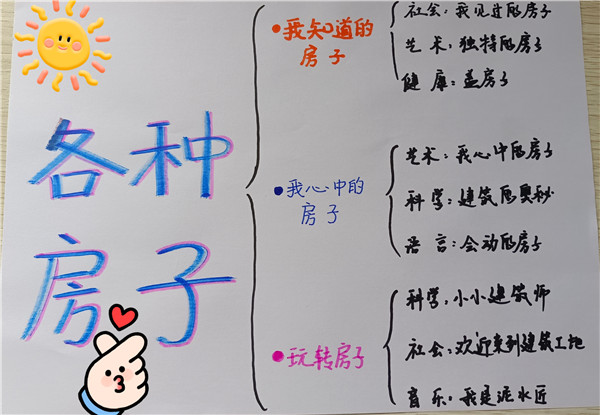 各种
房子
•我知道的
房子
社会：我见过的房子
艺术：独特的房子
健康：盖房子
•我心中的
房子
艺术：我心中的房子
科学：建筑的奥秘
语言：会动的房子
•玩转房子
科学：小小建筑师
社会：欢迎来到建筑工地
音乐：我是泥水匠